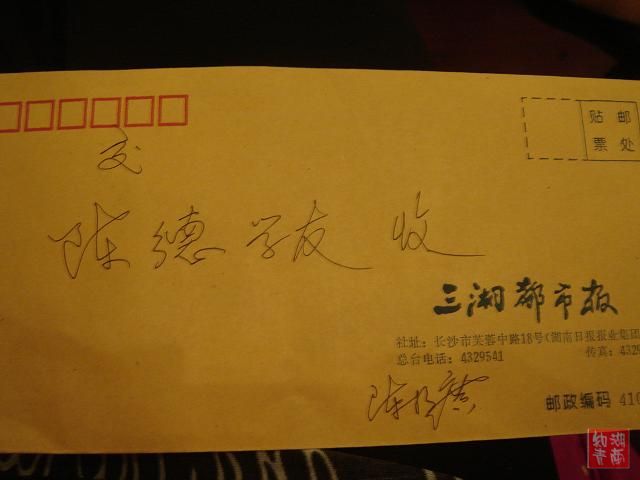 贴 邮
票 处
交
陈德学友 收
三湘都市报
社址：长沙市芙蓉中路18号(湖南日报报业集团
总台电话：4329541 传真：4329
邮政编码 410
湖南
知青